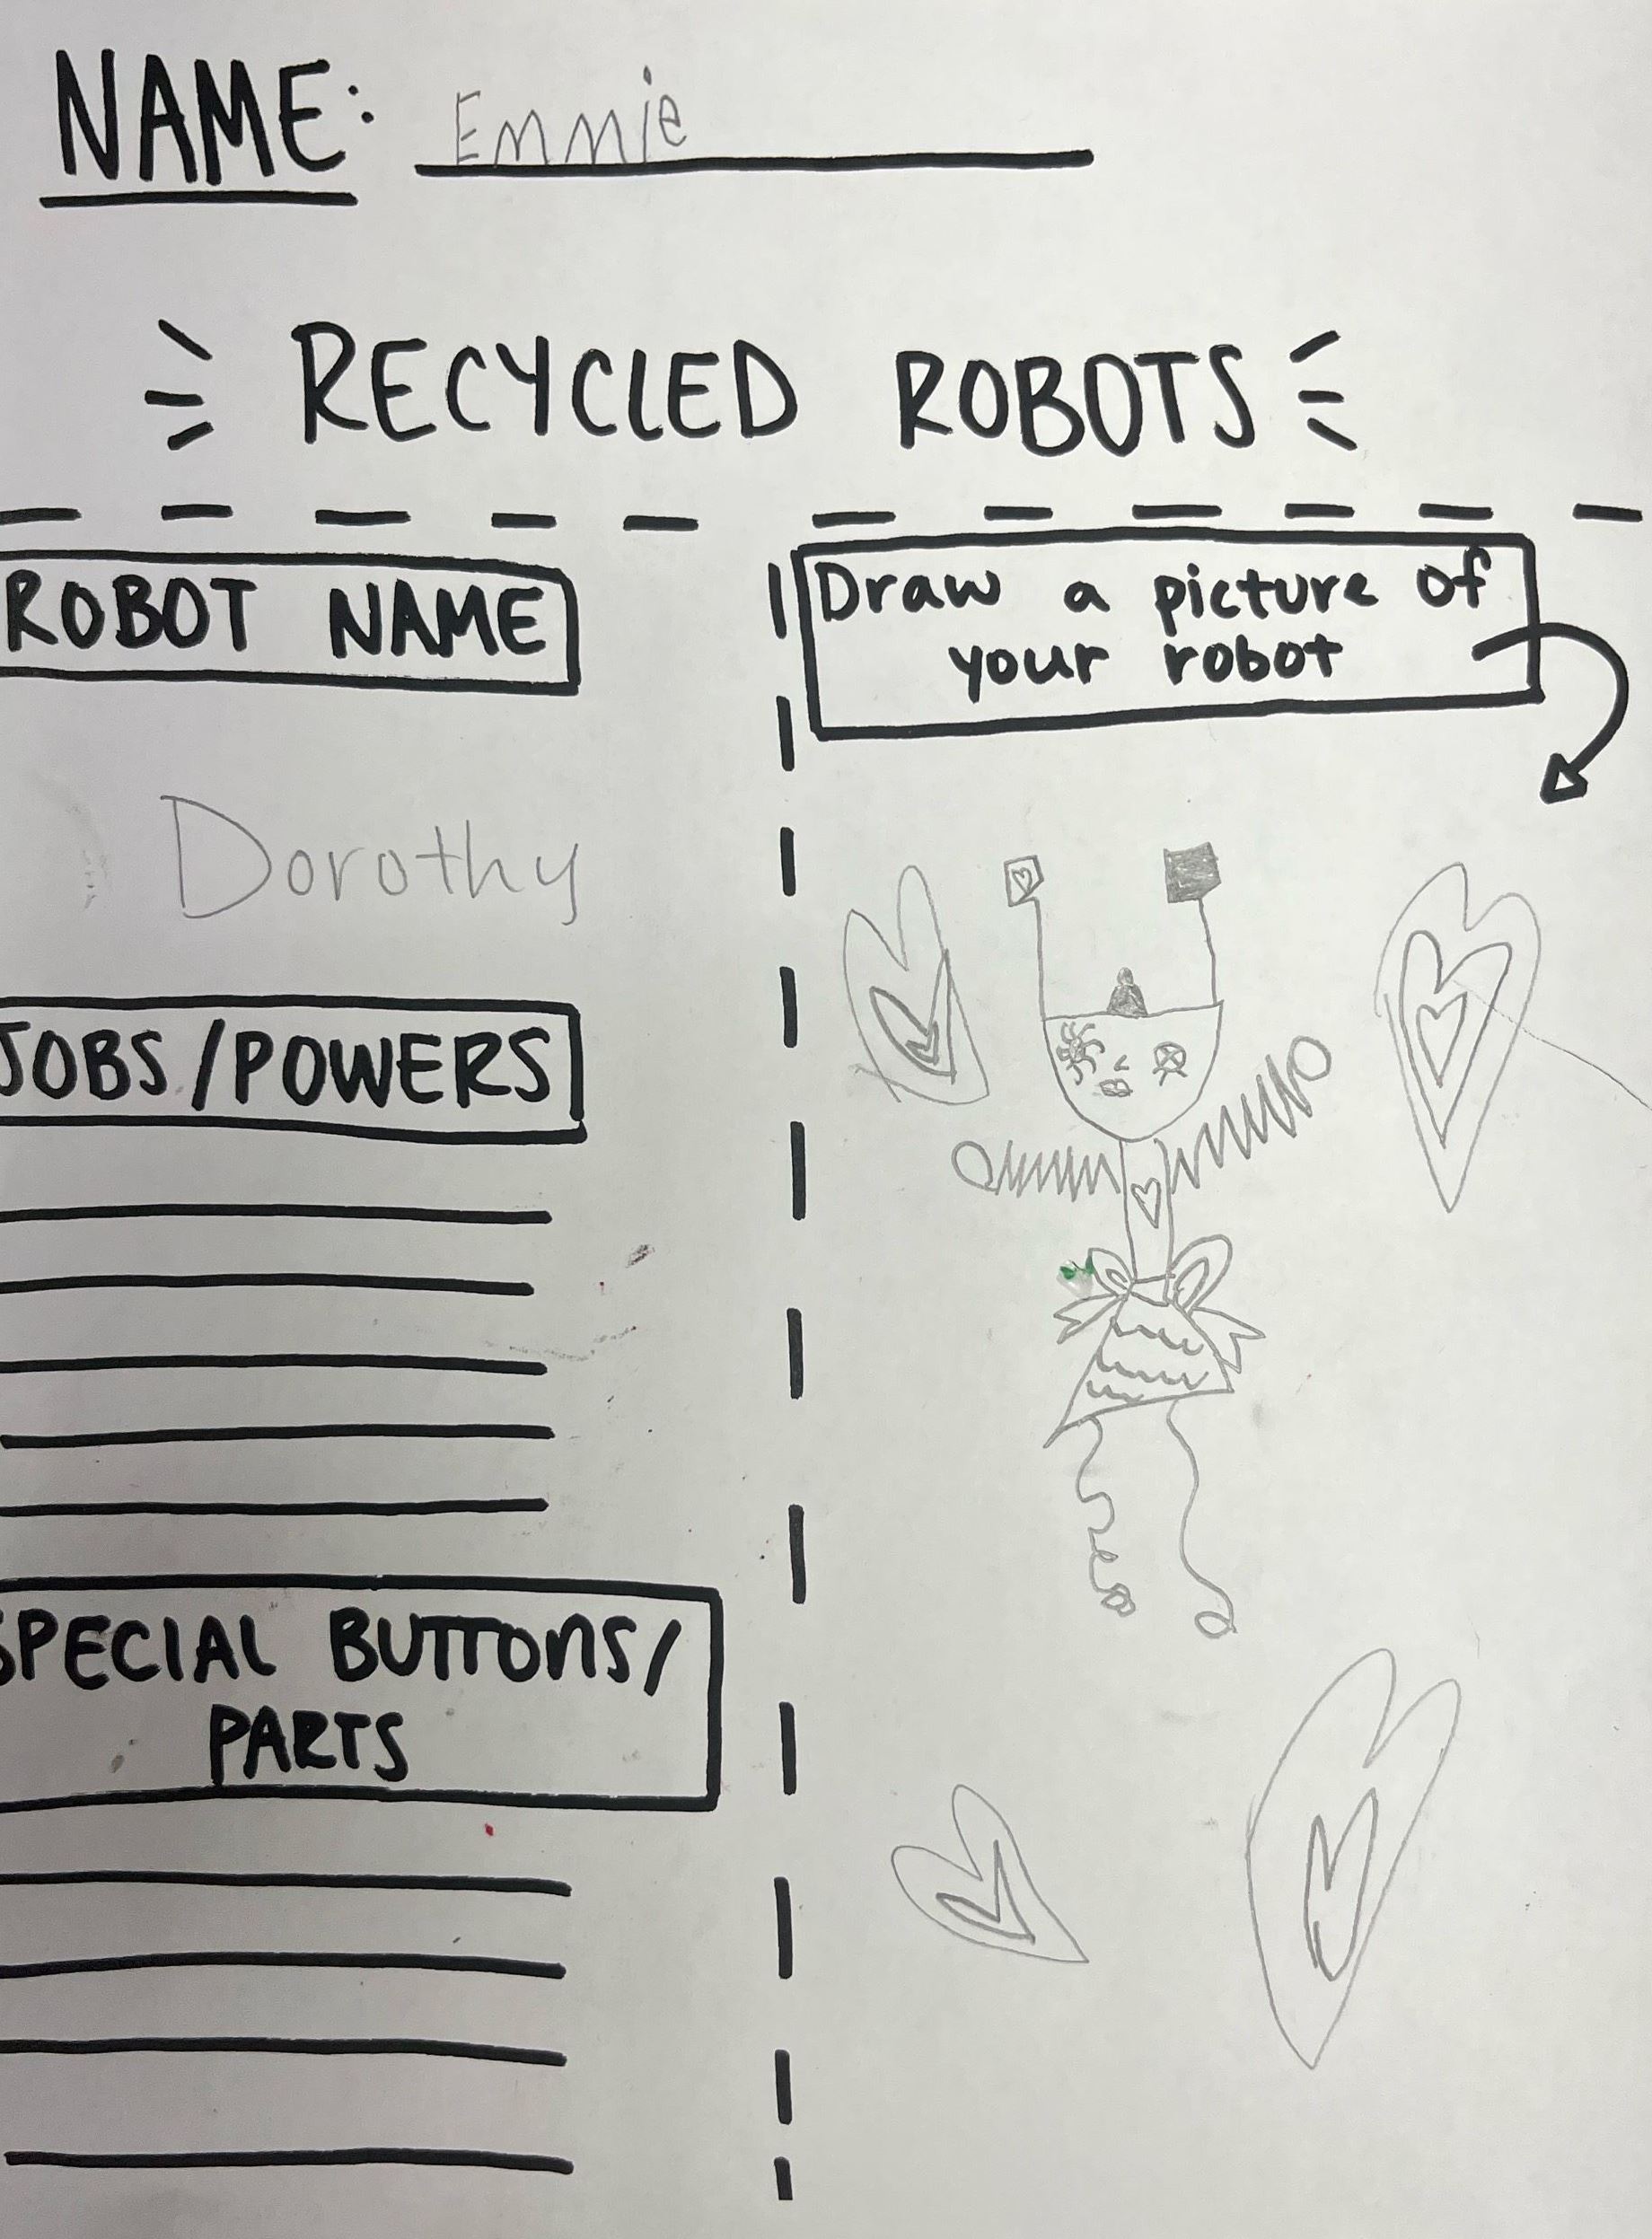 NAME: Emmie
RECYCLED ROBOTS
ROBOT NAME
Dorothy
JOBS/POWERS
SPECIAL BUTTONS/
PARTS
Draw a picture of
your robot